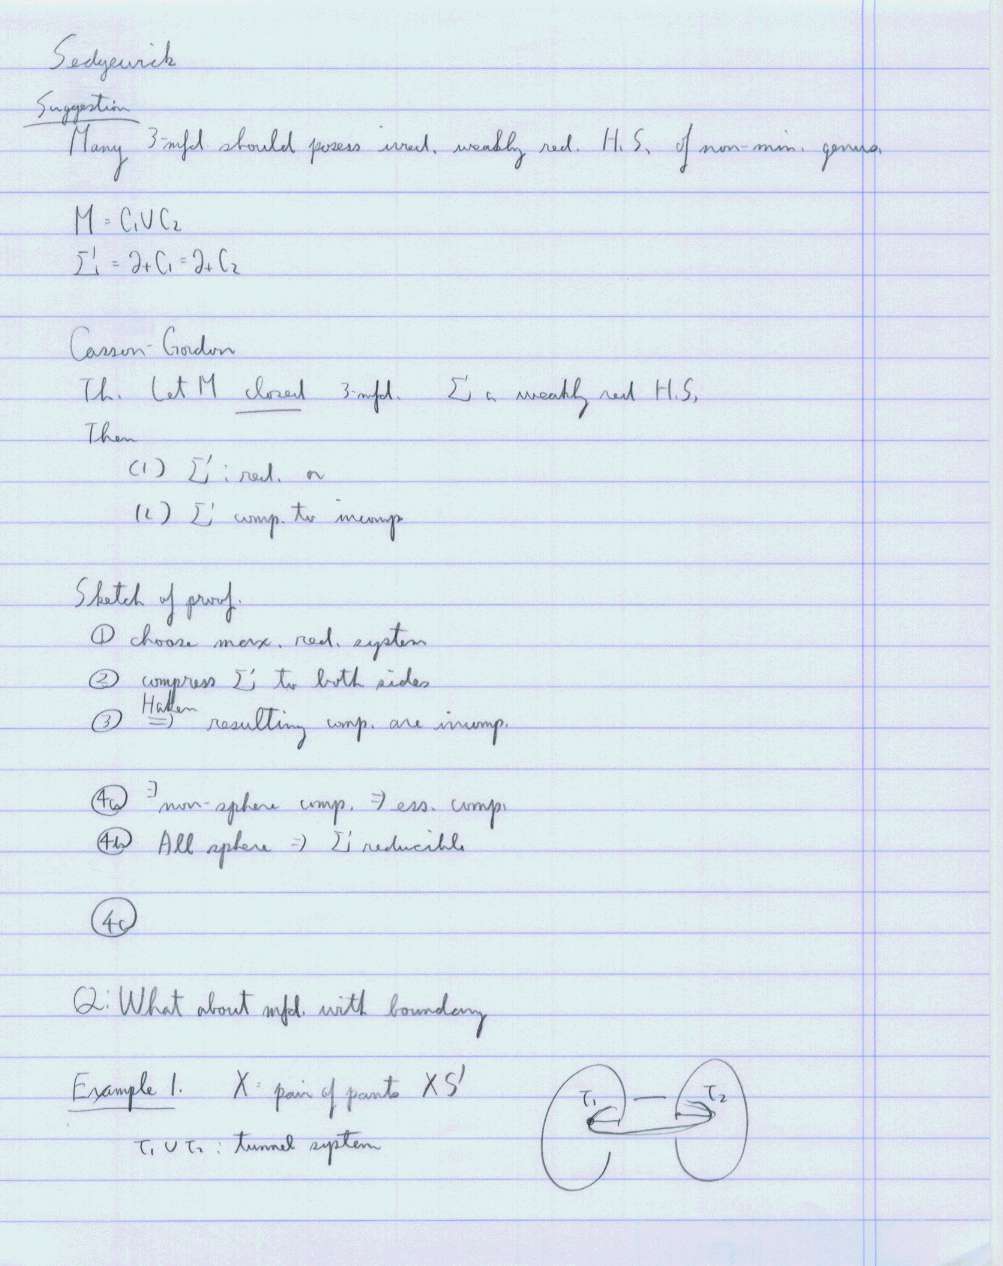 Sedgewick
Suggestion
Many 3-mfd should posess irred. weakly red. H.S. of non-min. genus.
M = C₁∪C₂
Σ = ∂₊C₁ = ∂₊C₂
Casson-Gordon
Th. Let M closed 3-mfd. Σ a weakly red H.S.
Then
(1) Σ : red. or
(2) Σ comp. to incomp
Sketch of proof.
① choose max. red. system
② compress Σ to both sides
③ Haken ⇒ resulting comp. are incomp.
④a ∃ non-sphere comp. ⇒ ess. comp.
④b All sphere ⇒ Σ reducible
④c
Q: What about mfd. with boundary
Example 1. X = pair of pants × S¹
τ₁ τ₂
τ₁ ∪ τ₂ : tunnel system